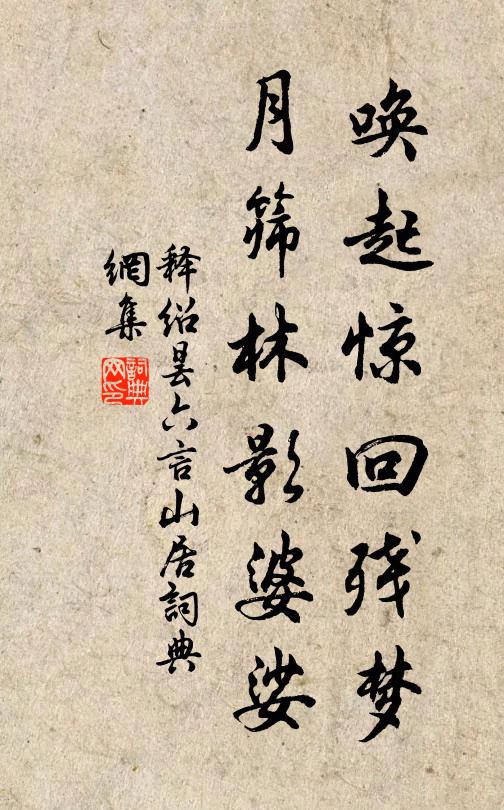 唤起惊回残梦
月筛林影婆娑
释绍昙六言山居詞典
網集
詞典
网印